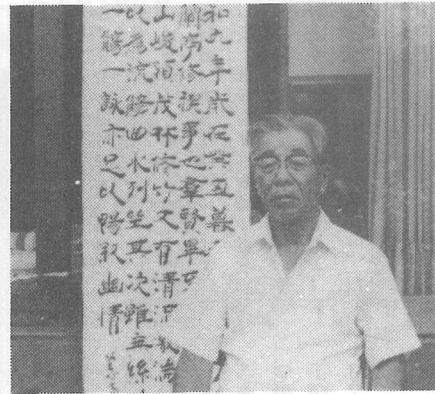 和九年歲在癸丑暮
蘭亭脩禊事也羣賢畢
山峻領茂林脩竹又有清流激湍
以為流觴曲水列坐其次雖無絲
一觴一詠亦足以暢叙幽情